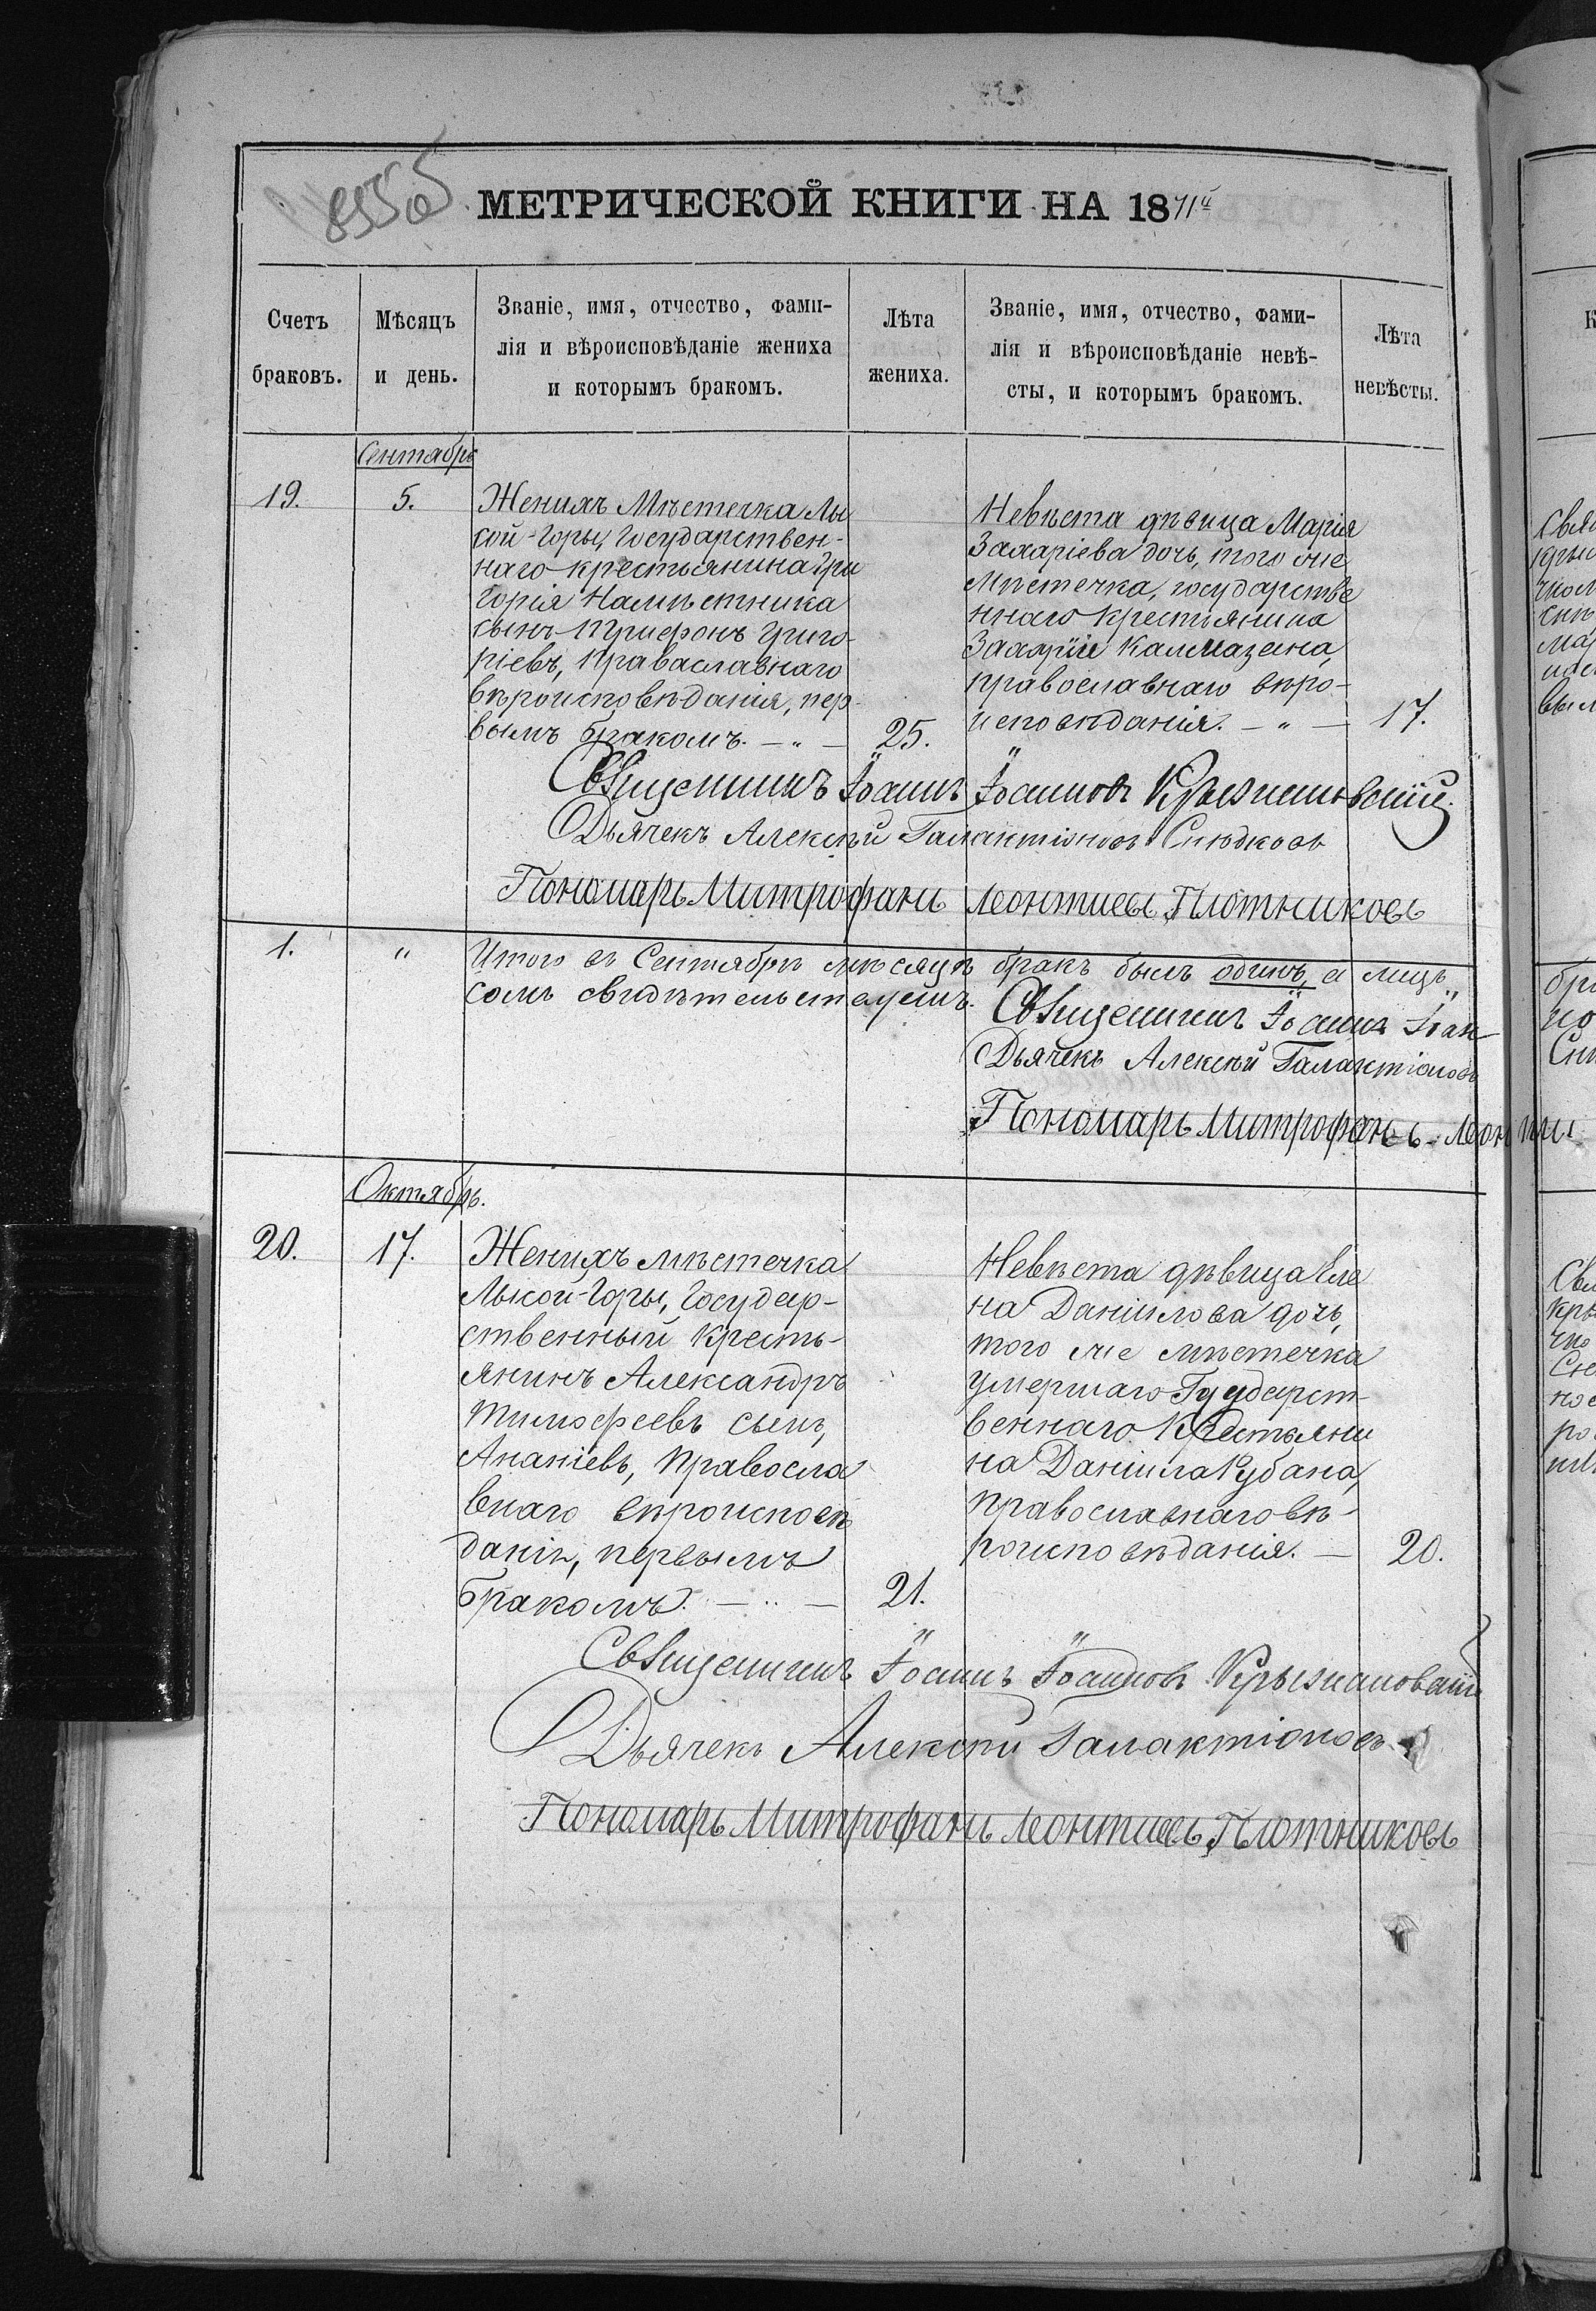 855об
МЕТРИЧЕСКОЙ КНИГИ НА 1871й
Счетъ
браковъ.
Мѣсяцъ
и день.
Званіе, имя, отчество, фами-
лія и вѣроисповѣданіе жениха
и которымъ бракомъ.
Лѣта
жениха.
Званіе, имя, отчество, фами-
лія и вѣроисповѣданіе невѣ-
сты, и которымъ бракомъ.
Лѣта
невѣсты.
Сентябрь
19.
5.
Женихъ Мѣстечка Лы
сой-Горы, Государствен-
наго крестьянина Гри
горія Намѣстника
сынъ Трифонъ Григо-
ріевъ, Праваславнаго
вѣроисповѣданія, пер-
вымъ бракомъ. — " —
25.
Невѣста дѣвица Марія
Захаріева дочь, того же
Мѣстечка, государстве
ннаго крестьянина
Захаріи Калмазана,
православнаго вѣро-
исповѣданія. — " —
17.
Священникъ Іоаннъ Іоанновъ Крыжановскій
Дьячекъ Алексѣй Галактіоновъ Снѣдковъ
Пономарь Митрофанъ Леонтиевъ Плотниковъ
1.
"
Итого въ Сентябрѣ мѣсяцѣ бракъ былъ одинъ, а лицъ
симъ свидѣтельствуемъ.
Священникъ Іоаннъ Іоан-
Дьячекъ Алексѣй Галактіоновъ
Пономарь Митрофанъ Леонтиі
Октябрь.
20.
17.
Женихъ мѣстечка
Лысой-Горы, Государ-
ственный кресть-
янинъ Александръ
Тимофеевъ сынъ,
Ананіевъ, Правосла
внаго вѣроисповѣ
данія, первымъ
бракомъ. — " —
21.
Невѣста дѣвица Еле
на Даніилова дочь,
того же мѣстечка
умершаго Государст-
веннаго Крестьяни
на Даніила Кубана,
православнаго вѣ-
роисповѣданія. —
20.
Священникъ Іоаннъ Іоанновъ Крыжановскій
Дьячекъ Алексѣй Галактіоновъ
Пономарь Митрофанъ Леонтиевъ Плотниковъ